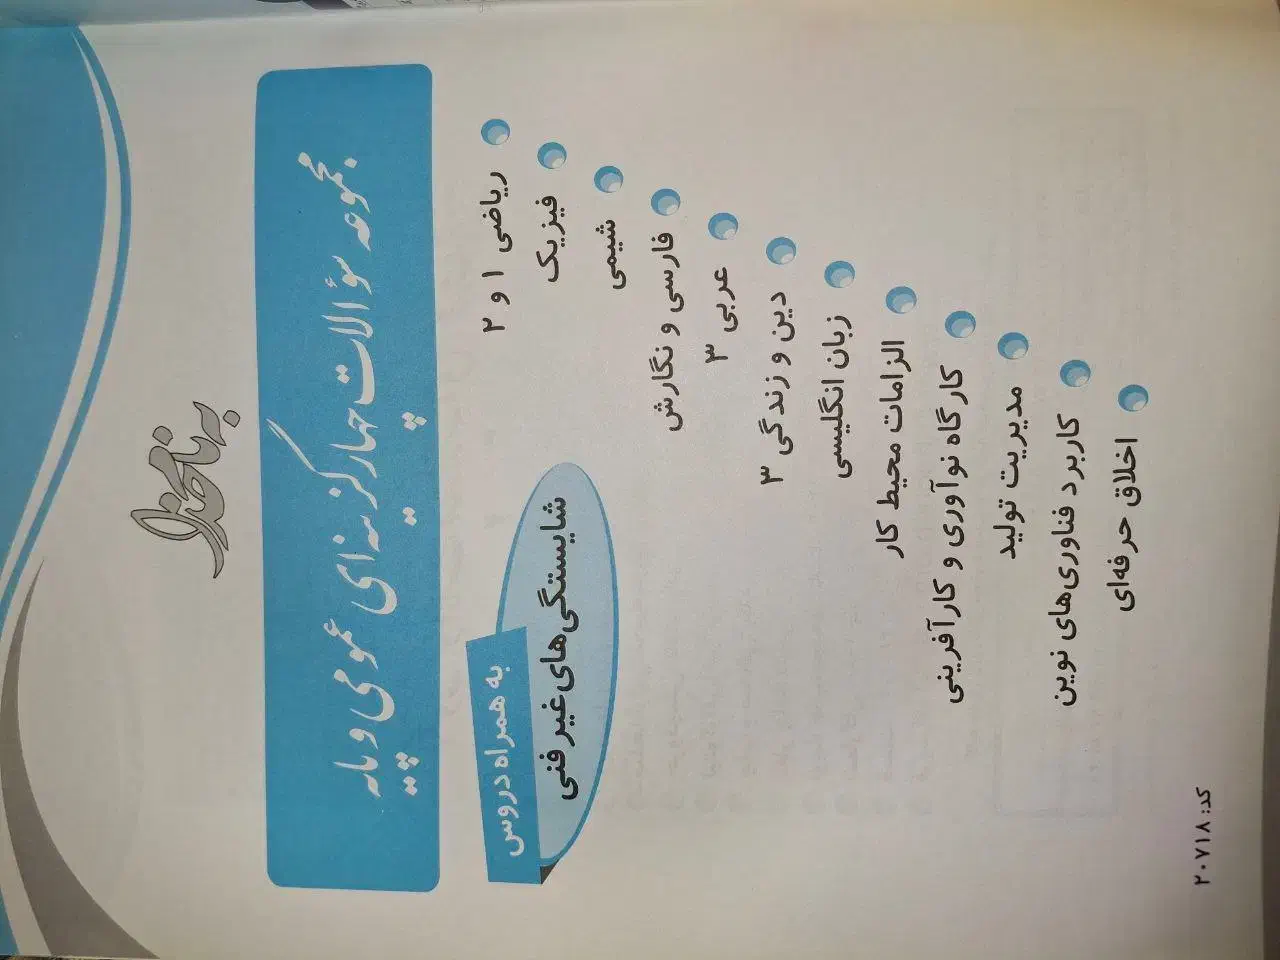 به نام خدا
مجموعه سؤالات چهارگزینه‌ای عمومی و پایه
ریاضی ۱ و ۲
فیزیک
شیمی
فارسی و نگارش
عربی ۳
دین و زندگی ۳
زبان انگلیسی
الزامات محیط کار
کارگاه نوآوری و کارآفرینی
مدیریت تولید
کاربرد فناوری‌های نوین
اخلاق حرفه‌ای
به همراه دروس
شایستگی‌های غیر فنی
کد: ۲۰۷۱۸